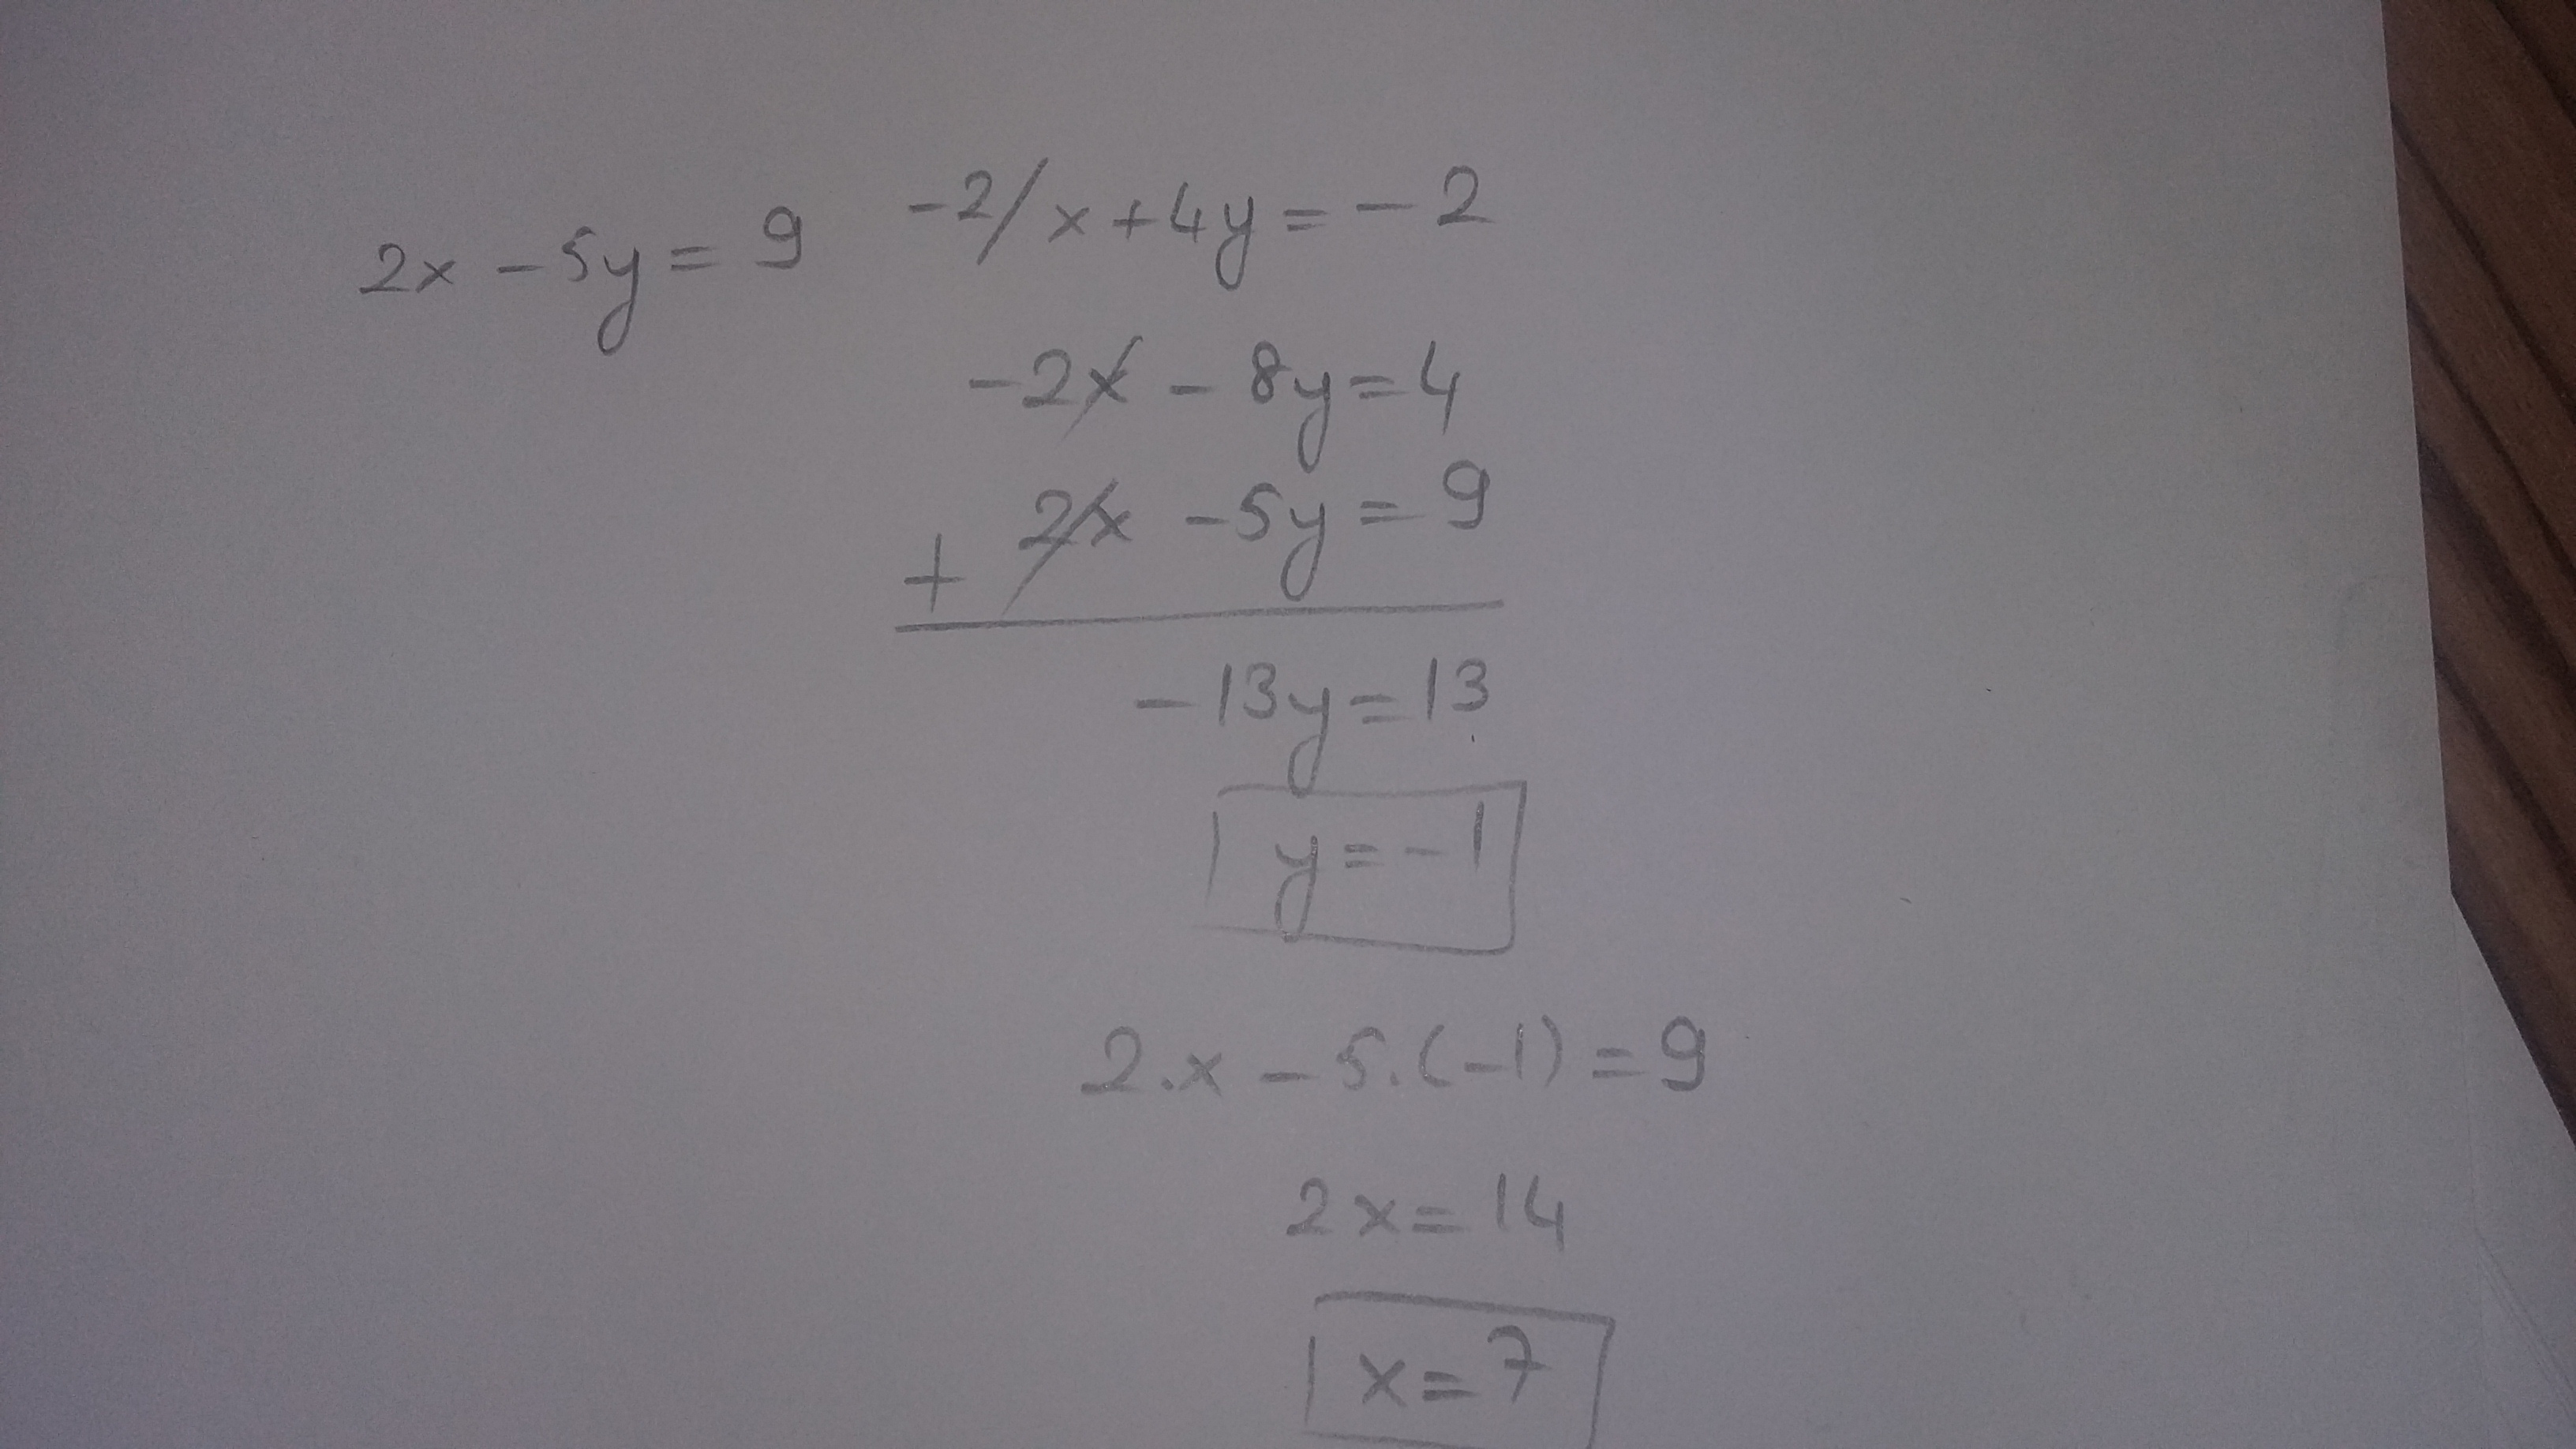 2x - 5y = 9 -2/ x + 4y = - 2
-2x - 8y = 4
+ 2x - 5y = 9
- 13y = 13
y = -1
2.x - 5.(-1) = 9
2x = 14
x = 7